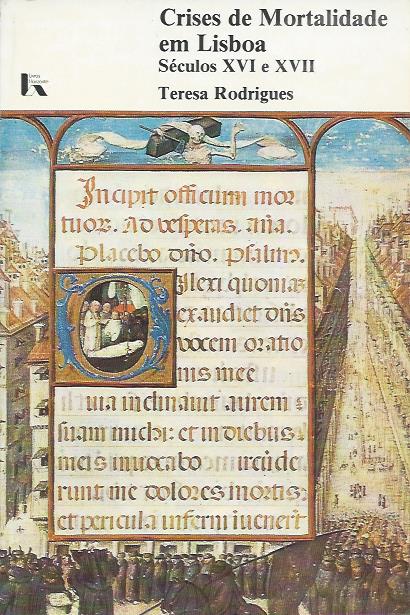 Crises de Mortalidade
em Lisboa
Séculos XVI e XVII
Teresa Rodrigues
Livros
Horizonte
Incipit officium mor
tuor. Ad vesperas. Aña
Placebo dño. Psalmo.
Dilexi quoniã
exaudiet dñs
vocem oratio
nis mee
uia inclinavit aurem
suam michi: et in diebus
meis invocabo ircũde
runt me dolores mortis:
et pericula inferni invenert